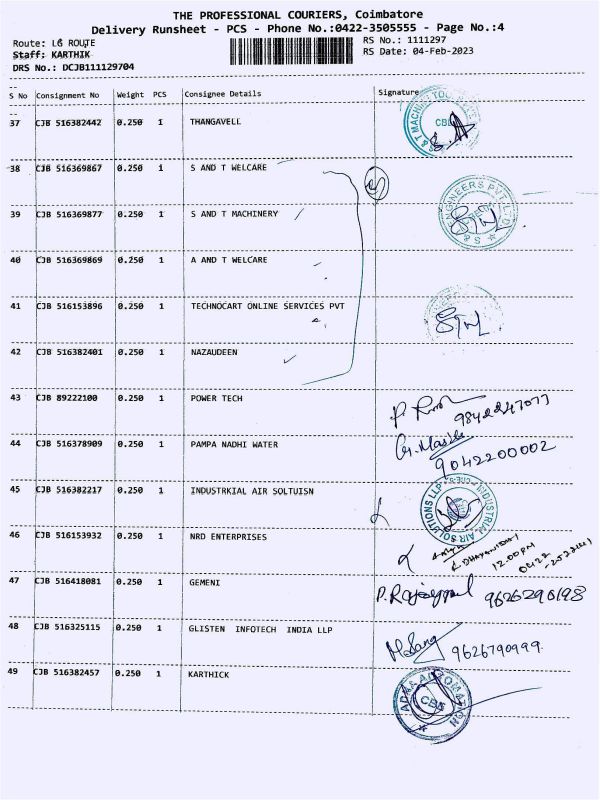 THE PROFESSIONAL COURIERS, Coimbatore
Delivery Runsheet - PCS - Phone No.:0422-3505555 - Page No.:4
Route: LG ROUTE
RS No.: 1111297
Staff: KARTHIK
RS Date: 04-Feb-2023
DRS No.: DCJB111129704
S No Consignment No Weight PCS Consignee Details Signature
37 CJB 516382442 0.250 1 THANGAVELL
38 CJB 516369867 0.250 1 S AND T WELCARE
39 CJB 516369877 0.250 1 S AND T MACHINERY
40 CJB 516369869 0.250 1 A AND T WELCARE
41 CJB 516153896 0.250 1 TECHNOCART ONLINE SERVICES PVT
42 CJB 516382401 0.250 1 NAZAUDEEN
43 CJB 89222100 0.250 1 POWER TECH
44 CJB 516378909 0.250 1 PAMPA NADHI WATER
9042200002
45 CJB 516382217 0.250 1 INDUSTRKIAL AIR SOLTUISN
INDUSTRIAL AIR SOLUTIONS LLP
46 CJB 516153932 0.250 1 NRD ENTERPRISES
12:00PM
47 CJB 516418081 0.250 1 GEMENI
9626296198
48 CJB 516325115 0.250 1 GLISTEN INFOTECH INDIA LLP
9626790999
49 CJB 516382457 0.250 1 KARTHICK